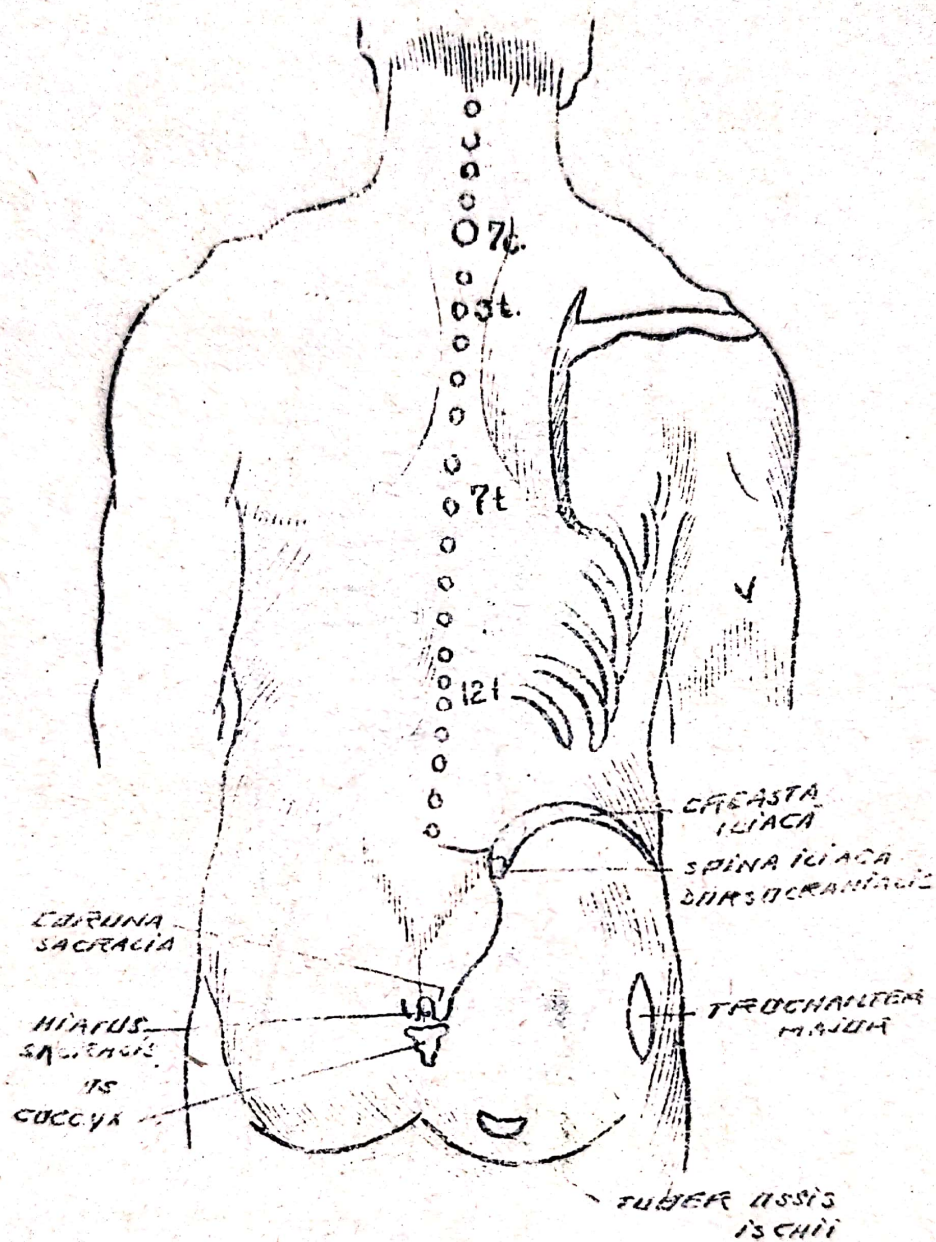 7c.
3t.
7t
12t
CREASTA
ILIACĂ
SPINA ILIACA
DORSOCRANIALIS
CORUNA
SACRALIA
HIATUS
SACRALIS
OS
COCCYX
TROCHANTER
MAJOR
TUBER OSSIS
ISCHII